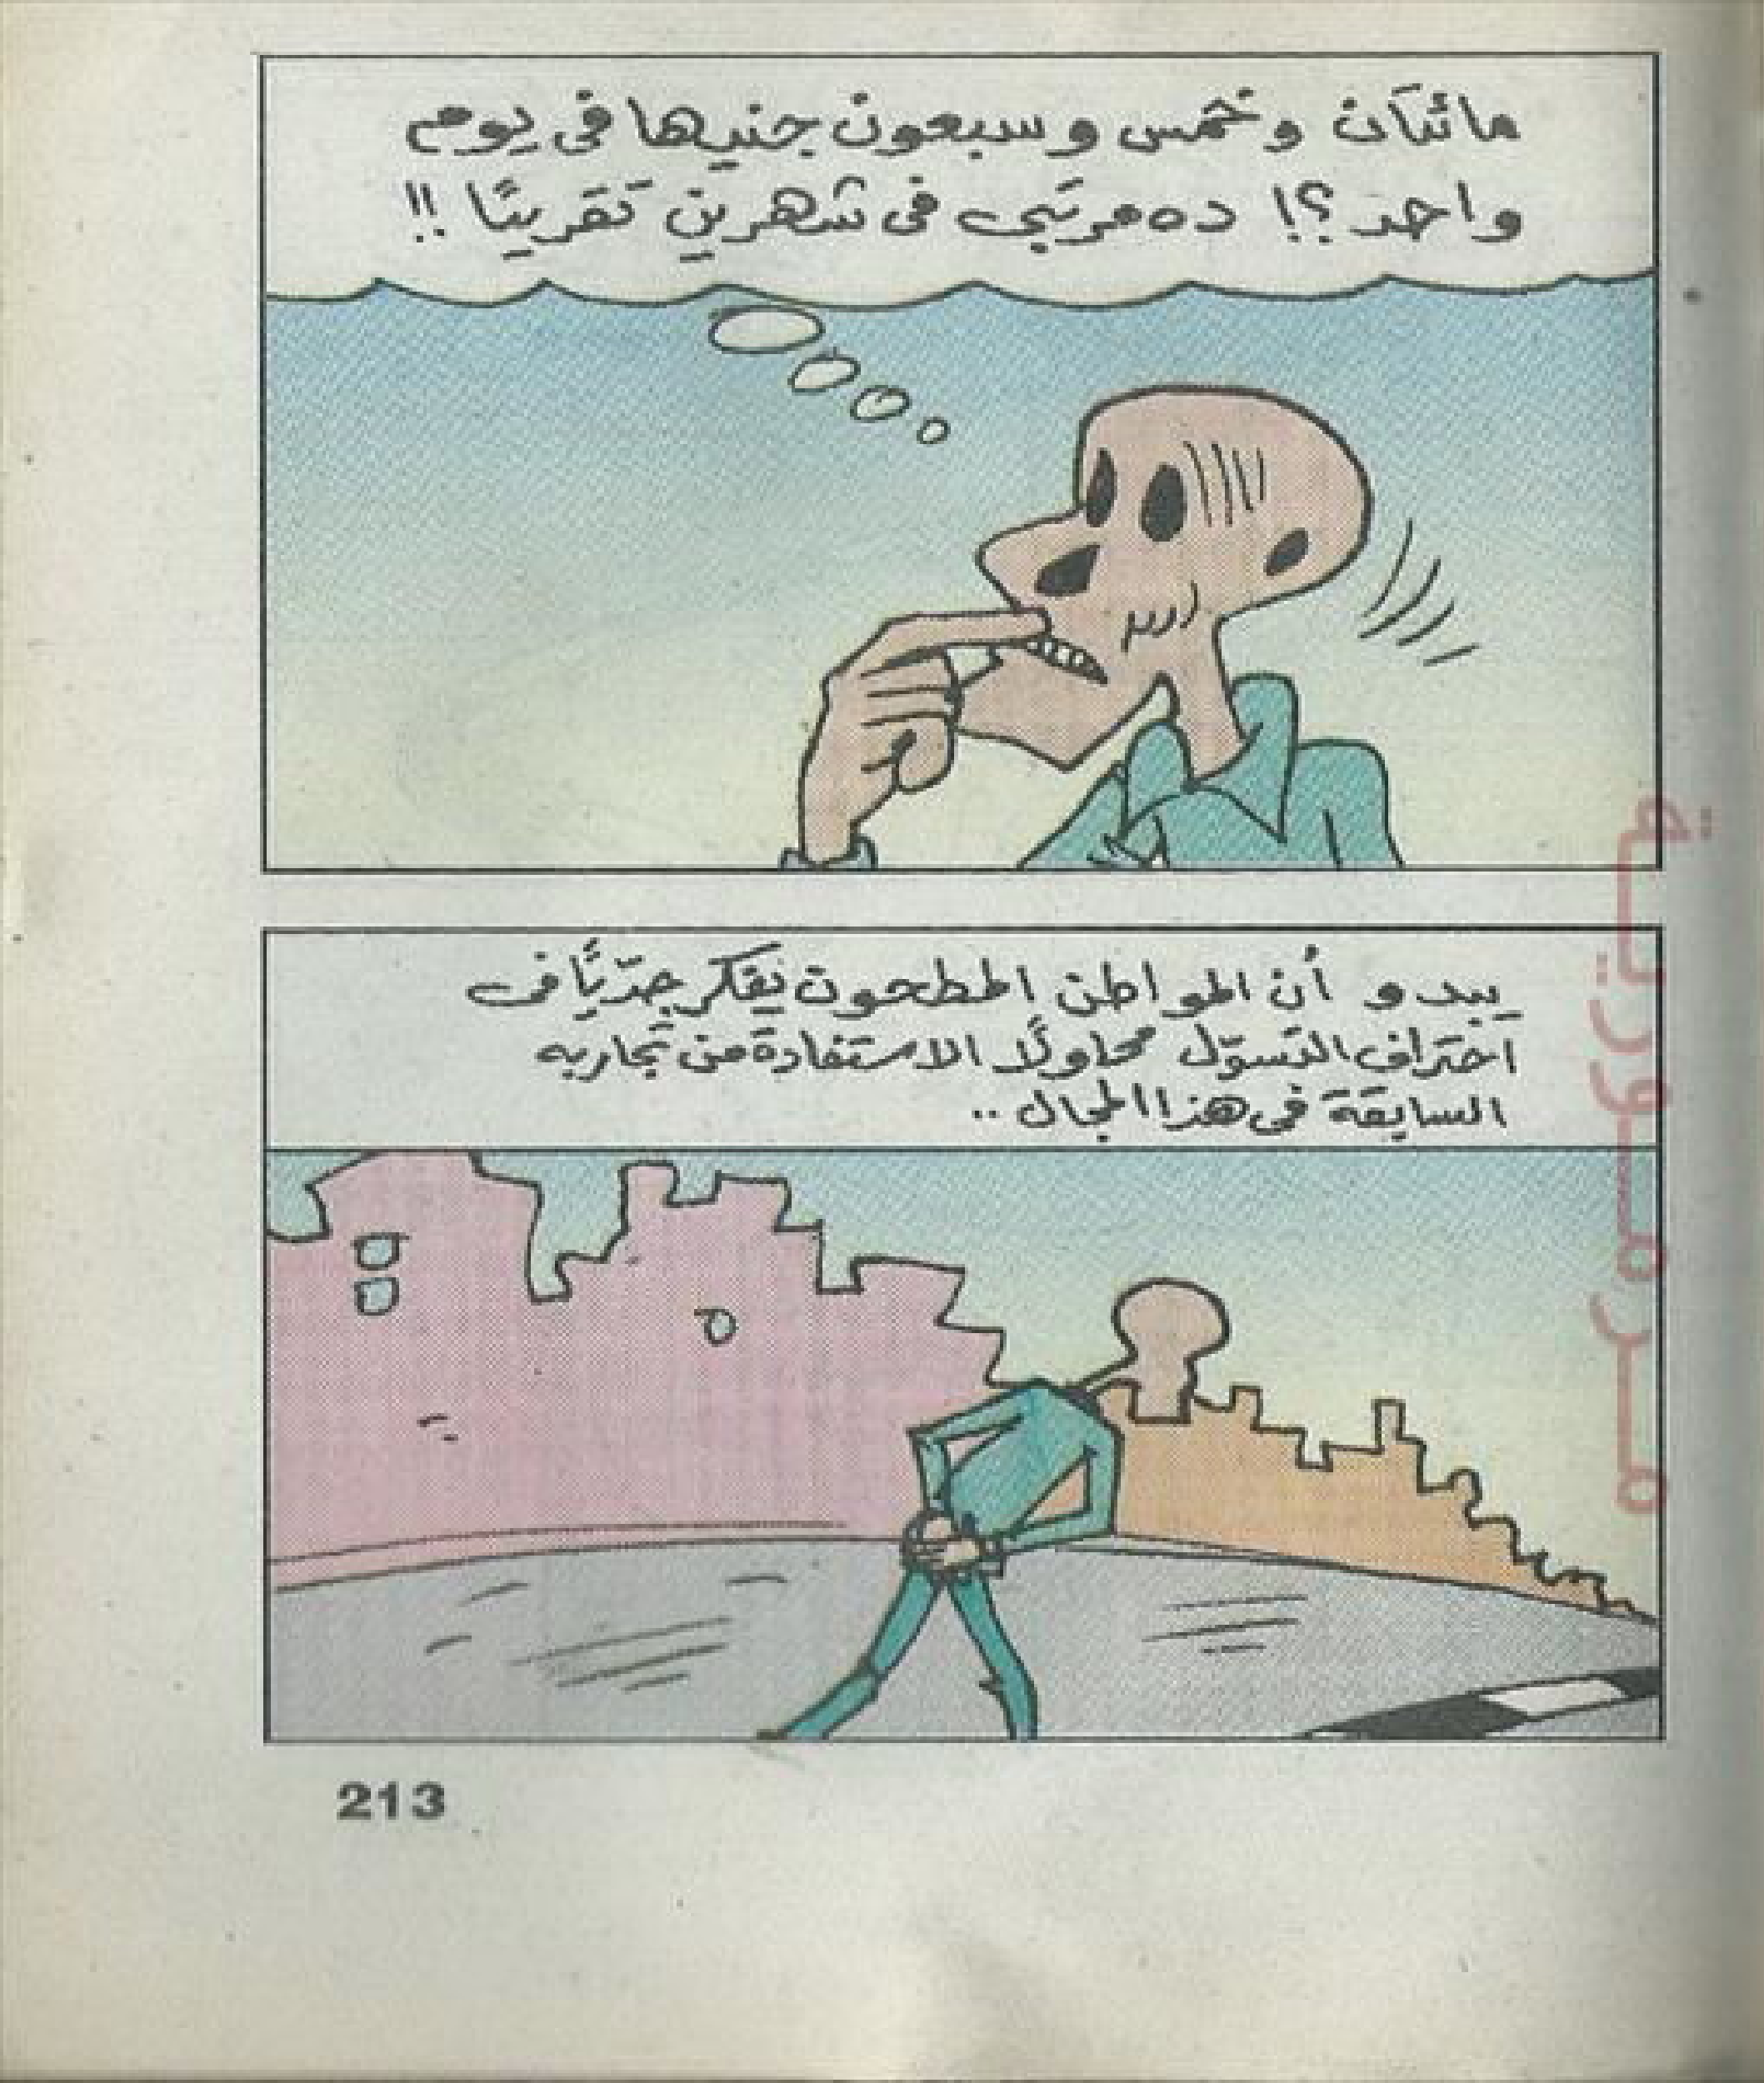 مائتان وخمس وسبعون جنيها فى يوم
واحد ؟! ده مرتبى فى شهرين تقريبًا !!
يبدو أن المواطن المطحون يفكر جدّيًا فى
احتراف التسوّل محاولًا الاستفادة من تجاربه
السابقة فى هذا المجال ..
مرمورية
213